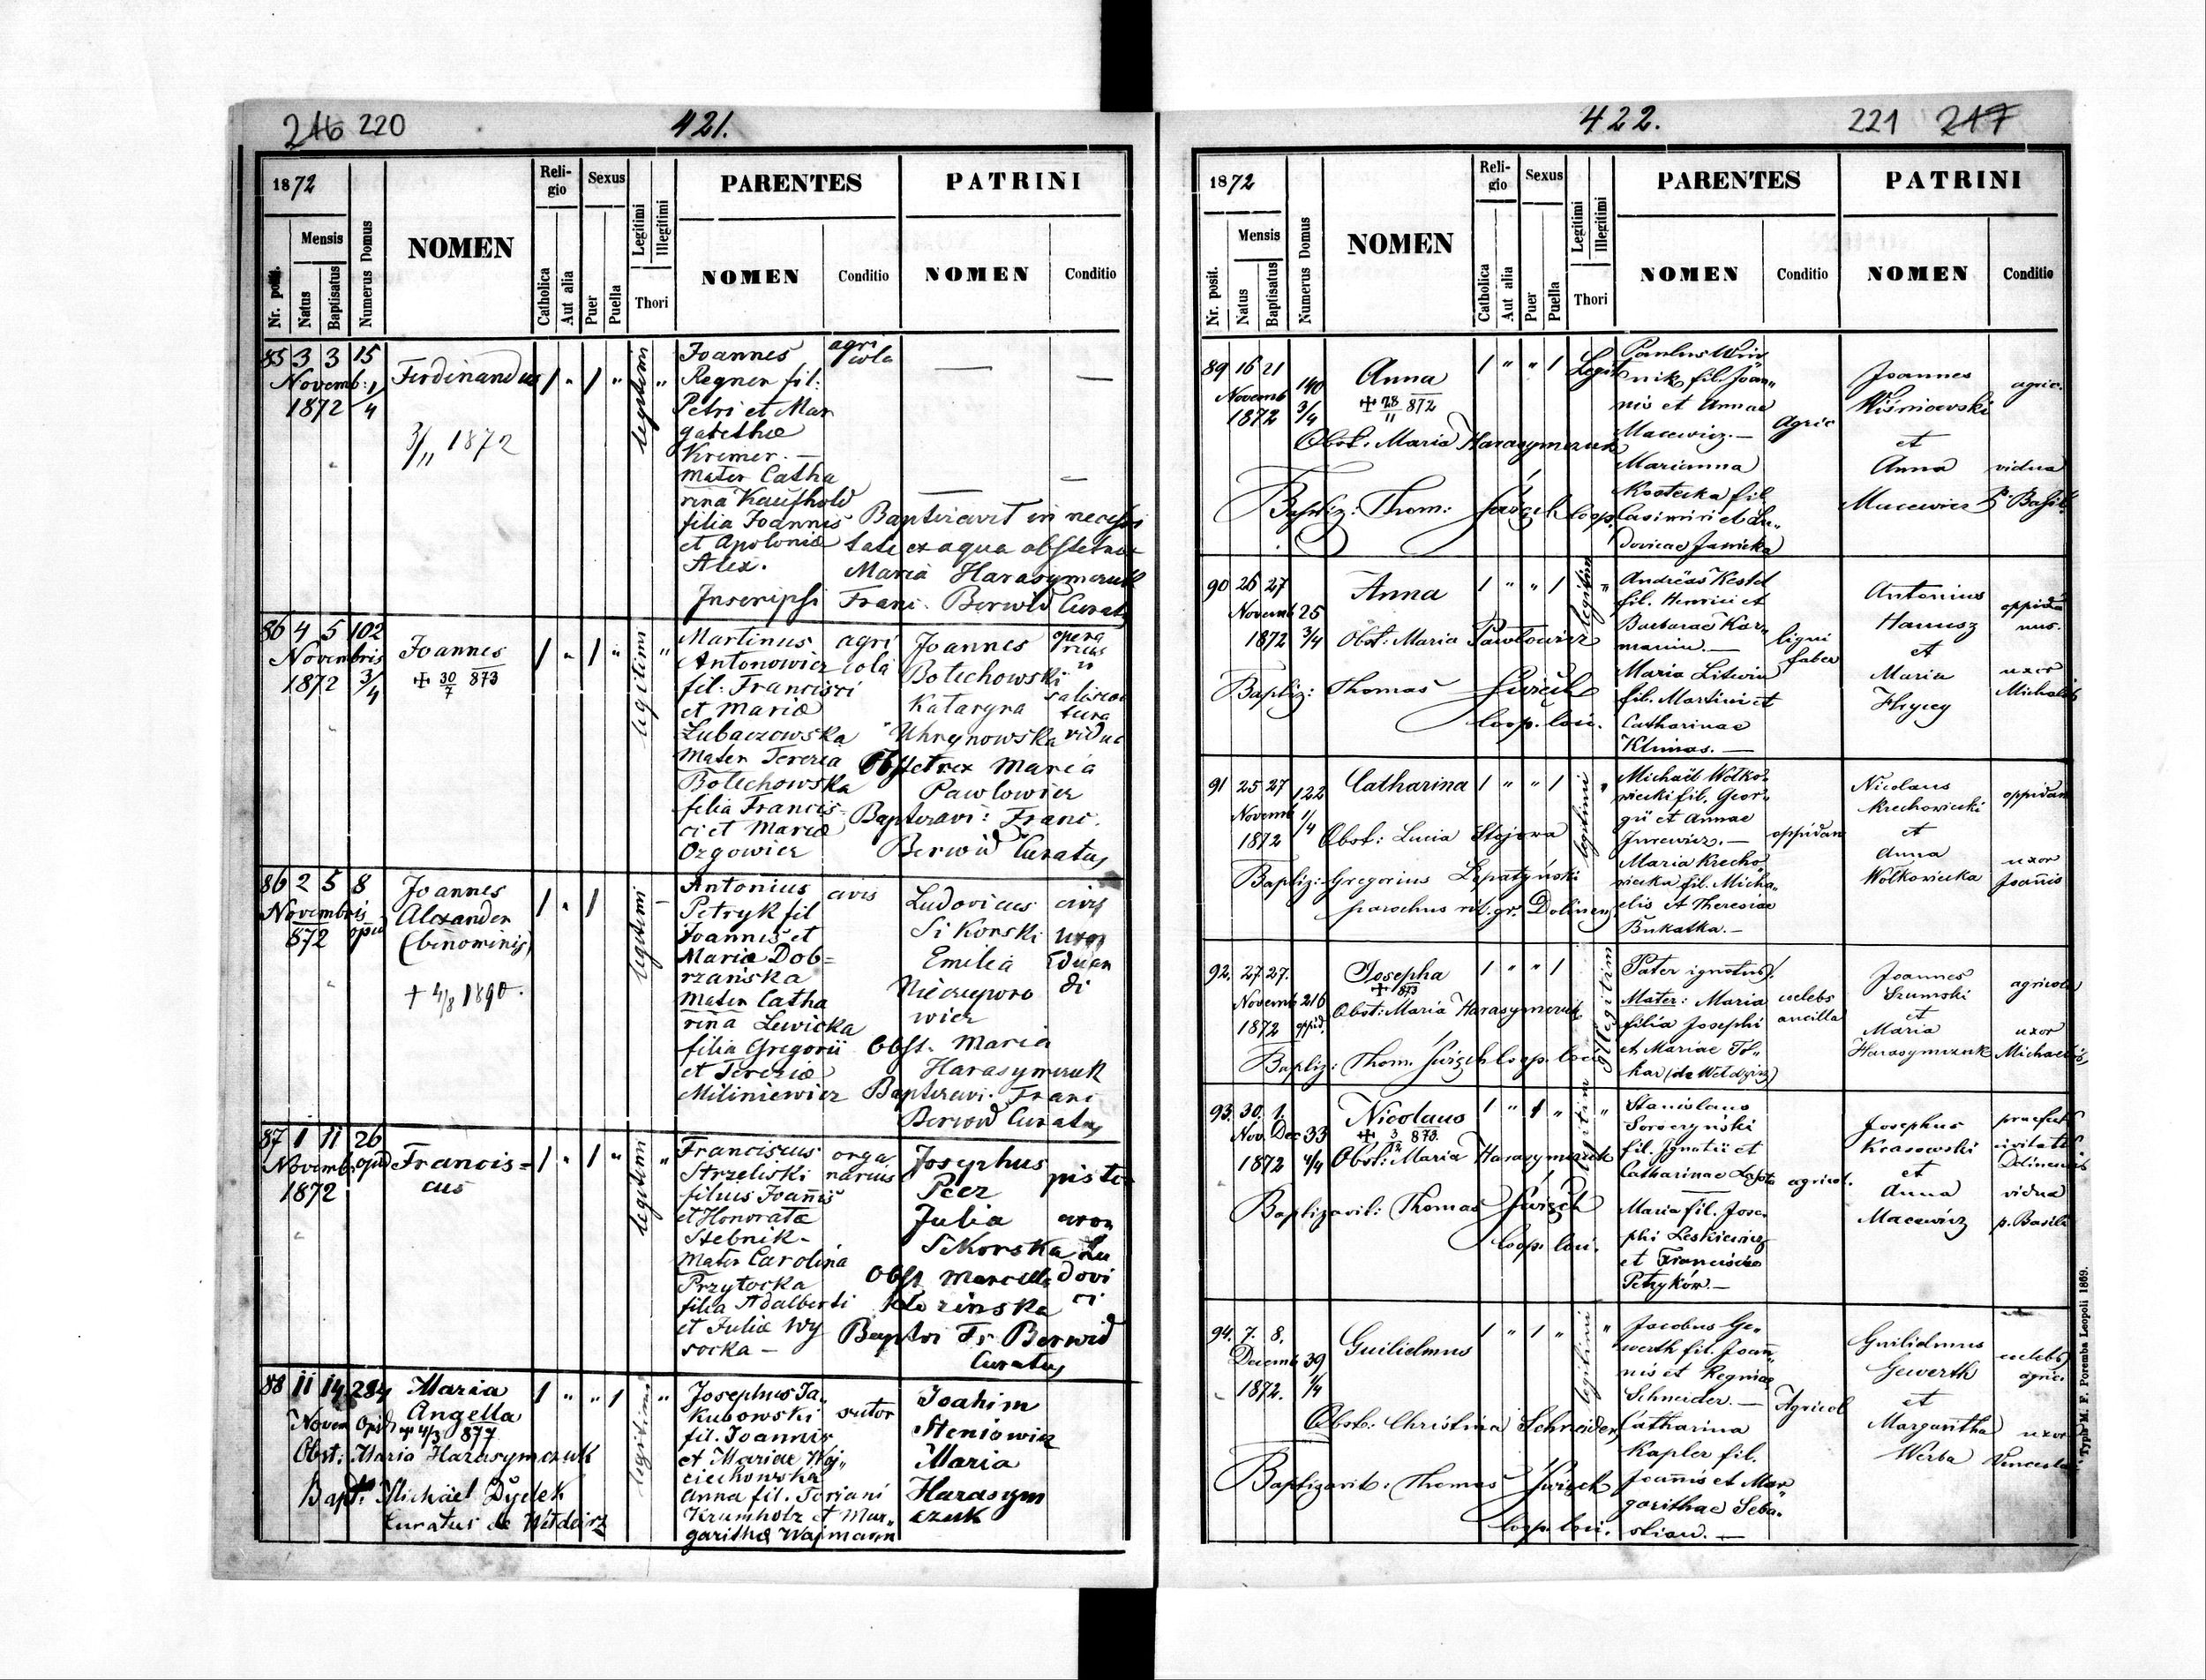 216 220
421.
1872
Nr. posit.
Mensis
Natus
Baptisatus
Numerus Domus
NOMEN
Religio
Catholica
Aut alia
Sexus
Puer
Puella
Legitimi
Illegitimi
Thori
PARENTES
NOMEN
Conditio
PATRINI
NOMEN
Conditio
85 3 3 15
Novemb: 1/4
1872
Ferdinandus
3/11 1872
legitimi
Joannes
Regner fil:
Petri et Mar
garethæ
Kremer. —
Mater Catha
rina Kaufhold
filia Joannis
et Apoloniæ
Alex.
agri
cola
Baptisavit in necessi
tate ex aqua obstetrix
Maria Harasymczuk
Inscripsi Franc. Berwid Curatus
86 4 5 102
Novembris 3/4
1872
Joannes
+ 30/7 873
legitimi
Martinus
Antonowicz
fil. Francisci
et Mariæ
Lubaczowska
Mater Tereza
Bolechowska
filia Francis
ci et Mariæ
Ozgowicz
agri
cola
Joannes
Bolechowski
Kataryna
Uhrynowska
opera
rius
vidua
Obstetrix Maria
Pawlowicz
Baptisavi: Franc.
Berwid Curatus
86 2 5 8
Novembris opid
872
Joannes
Alexander
(binominis)
+ 4/8 1890.
legitimi
Antonius
Petryk fil
Joannis et
Mariæ Dob=
rzańska
Mater Catha
rina Lewicka
filia Gregorii
et Tereziæ
Miliniewicz
civis
Ludovicus
Sikorski
Emilia
wicz
civis
uxor
Eduar
di
Obst. Maria
Harasymczuk
Baptisavi. Franc
Berwid Curatus
87 1 11 26
Novemb. opid
1872
Francis=
cus
legitimi
Franciscus
Strzeliski
filius Joannis
et Honorata
Stebnik-
Mater Carolina
Przytocka
filia Adalberti
et Juliæ Wy
socka —
orga
narius
Josephus
Peer
Julia
Sikorska
pistor
uxor
Ludovi
ci
Obst Marcella
Bapt Fr Berwid
Curatus
88 11 14 284
Novem Opid
Maria
Angella
+ 4/3 877
legitimi
Josephus Ja
kubowski
fil. Joannis
et Mariae Woj„
ciechowska
Anna fil. Floriani
Krumholz et Mar„
garithæ Wajmann
sutor
Joahim
Steniowicz
Maria
Harasym
czuk
Obst: Maria Harasymczuk
Bapt: Michäel Dydek
Curatus de Wełdzirz
422.
221 217
1872
Nr. posit.
Mensis
Natus
Baptisatus
Numerus Domus
NOMEN
Religio
Catholica
Aut alia
Sexus
Puer
Puella
Legitimi
Illegitimi
Thori
PARENTES
NOMEN
Conditio
PATRINI
NOMEN
Conditio
89 16 21 140
Novemb 3/4
1872
Anna
+ 28/11 872
Obst: Maria Harasymczuk
Bapliz: Thom: Świzch Coop.
Legit
Paulus Win
nik, fil. Joan„
nis et Annae
Macewicz. —
Marianna
Kostecka fil.
Casimiri et Lu„
dovicae Janicka
Agric
Joannes
Wiśniowski
et
Anna
Macewicz
agric.
vidua
p. Basil.
90 26 27 25
Novemb 3/4
1872
Anna
Obst: Maria Pawlowicz
Bapliz: Thomas Świzch
Coop. loci.
legitimi
Andreas Kestel
fil. Henrici et
Barbarae
Maria Litwin
fil. Martini et
Catharinae
Klimas. —
ligni
faber
Antonius
Hanusz
et
Maria
Hrycy
oppida
nus.
uxor
Michaelis
91 25 27 122
Novemb 1/4
1872
Catharina
Obst: Lucia
Bapliz: Gregorius Lopatyński
parochus rit. gr. Dolinens
legitimi
Michaël Wołko„
wiecki fil. Geor„
gii et Annae
Jurewicz. —
Maria Krecho„
wiecka fil. Micha„
elis et Theresiae
Bukatka. —
oppidan
Nicolaus
Krechowiecki
et
Anna
Wołkowiecka
oppidan
uxor
Joannis
92. 27 27. 216
Novemb oppid.
1872
Josepha
+ 873
Obst: Maria Harasymczuk
Bapliz: Thom. Świzch Coop. loci
Illegitim
Pater ignotus!
Mater: Maria
filia Josephi
et Mariae To„
kar (de Wełdzirz)
celebs
ancilla
Joannes
Szumski
et
Maria
Harasymczuk
agricola
uxor
Michaelis
93. 30. 1. 33
Nov. Dec
1872 4/4
Nicolaus
+ 3/12 873.
Obst: Maria Harasymczuk
Baplizavit: Thomas Świzch
Coop. loci.
legitim
Stanislaus
Soroczyński
fil. Ignatii et
Catharinae
Maria fil. Jose„
phi Leskiewicz
et Franciscae
Petryków. —
agricol.
Josephus
Krasowski
et
Anna
Macewicz
praefect
civitatis
Dolinensis
vidua
p. Basili
94. 7. 8. 39
Decemb 1/4
1872.
Guilielmus
Obst: Christina Schneider
Baplizavit: Thomas Świzch
Coop. loci.
legitimi
Jacobus Ge„
werth fil. Joan„
nis et Reginae
Schneider. —
Catharina
Kapler fil.
Joannis et Mar„
garithae Seba„
stian. —
Agricol
Guilielmus
Gewerth
et
Margaritha
Werba
celebs
agric
uxor
Venceslai
Typis M. F. Poremba Leopoli 1869.